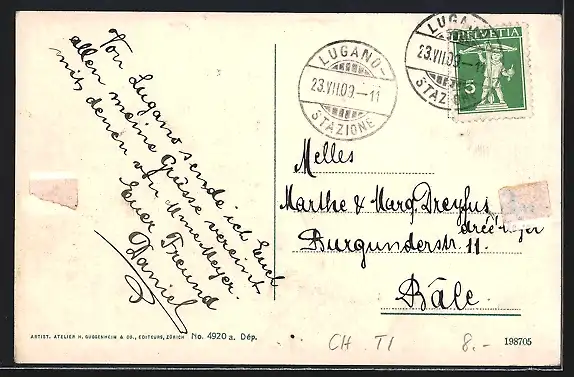 Von Lugano sende ich Euch
allen meine Grüsse vereint
mit denen von
Euer Freund
Daniel
LUGANO-
23.VII.09-11
STAZIONE
LUGANO-
23.VII.09-11
STAZIONE
HELVETIA
5
Melles
Marthe & Marg. Dreyfus
Burgunderstr. 11.
Bâle
ARTIST. ATELIER H. GUGGENHEIM & CO., EDITEURS, ZÜRICH No. 4920 a. Dép.
CH TI 8.- 198705